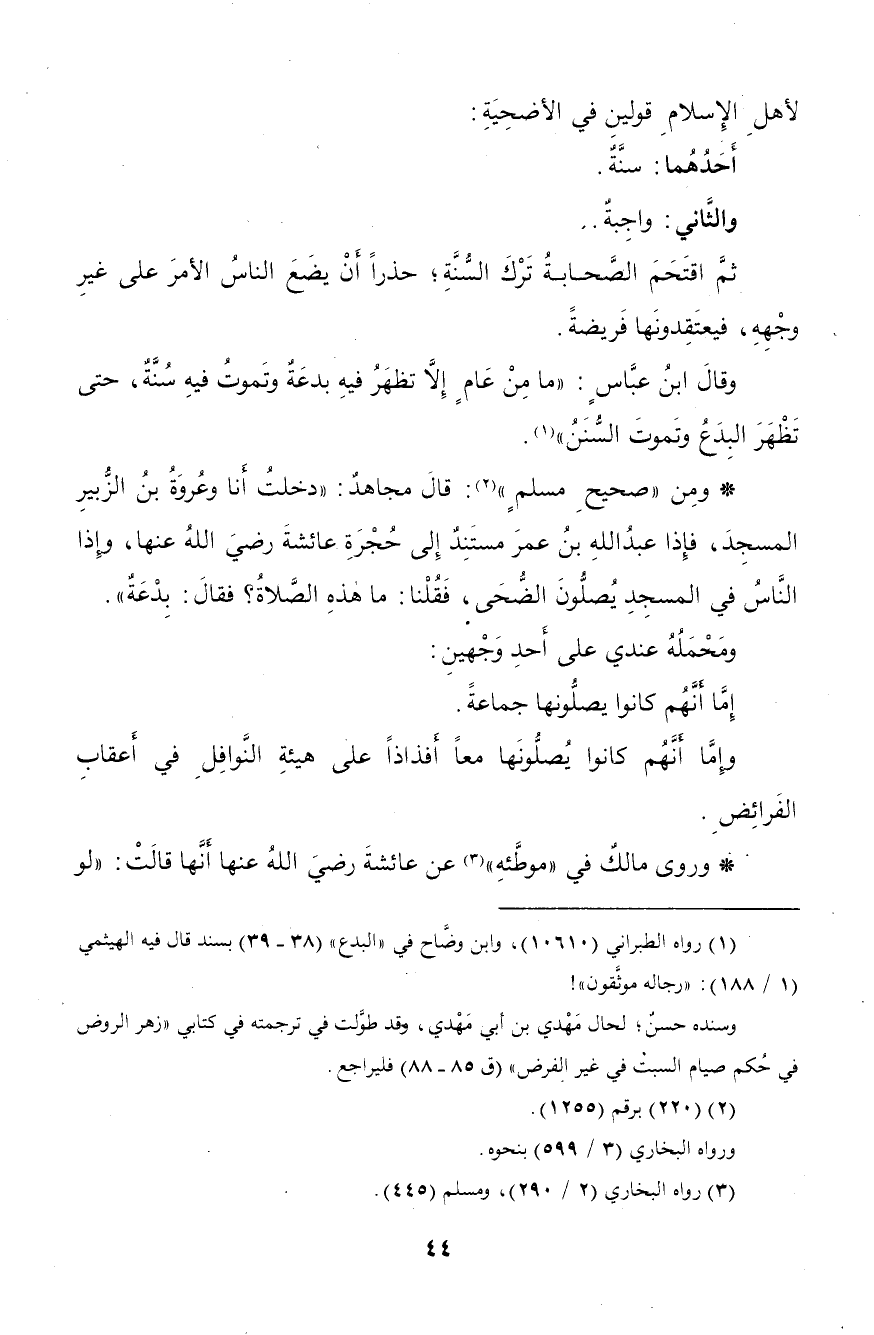 لأهلِ الإِسلامِ قولينِ في الأضحِيَةِ:
أَحَدُهُما: سنَّةٌ.
والثَّاني: واجِبةٌ..
ثمَّ اقتَحَمَ الصَّحـابـةُ تَرْكَ السُّنَّةِ؛ حذراً أَنْ يضَعَ الناسُ الأمرَ على غيرِ
وجْهِهِ، فيعتَقِدونَها فَريضةً.
وقالَ ابنُ عبَّاسٍ: «ما مِنْ عَامٍ إِلَّا تظهَرُ فيهِ بدعَةٌ وتَموتُ فيهِ سُنَّةٌ، حتى
تَظْهَرَ البِدَعُ وتَموتَ السُّنَنُ»(١).
* ومِن «صحيحِ مسلمٍ»(٢): قالَ مجاهدٌ: «دخلتُ أَنا وعُروَةُ بنُ الزُّبيرِ
المسجِدَ، فإِذا عبدُاللهِ بنُ عمرَ مستَنِدٌ إِلى حُجْرَةِ عائشةَ رضيَ اللهُ عنها، وإِذا
النَّاسُ في المسجِدِ يُصلُّونَ الضُّحَى، فَقُلْنا: ما هٰذهِ الصَّلاةُ؟ فقالَ: بِدْعَةٌ».
ومَحْمَلُهُ عندي على أَحدِ وَجْهينِ:
إِمَّا أَنَّهُم كانوا يصلُّونها جماعةً.
وإِمَّا أَنَّهُم كانوا يُصلُّونَها معاً أَفذاذاً على هيئةِ النَّوافِلِ في أَعقابِ
الفَرائِضِ.
* وروى مالكٌ في «موطَّئهِ»(٣) عن عائشةَ رضيَ اللهُ عنها أَنَّها قالَتْ: «لو
(١) رواه الطبراني (١٠٦١٠)، وابن وضَّاح في «البدع» (٣٨ - ٣٩) بسند قال فيه الهيثمي
(١ / ١٨٨): «رجاله موثَّقون»!
وسنده حسنٌ؛ لحال مَهْدي بن أبي مَهْدي، وقد طوَّلت في ترجمته في كتابي «زهر الروض
في حُكم صيام السبتْ في غير الفرض» (ق ٨٥ - ٨٨) فليراجع.
(٢) (٢٢٠) برقم (١٢٥٥).
ورواه البخاري (٣ / ٥٩٩) بنحوه.
(٣) رواه البخاري (٢ / ٢٩٠)، ومسلم (٤٤٥).
٤٤